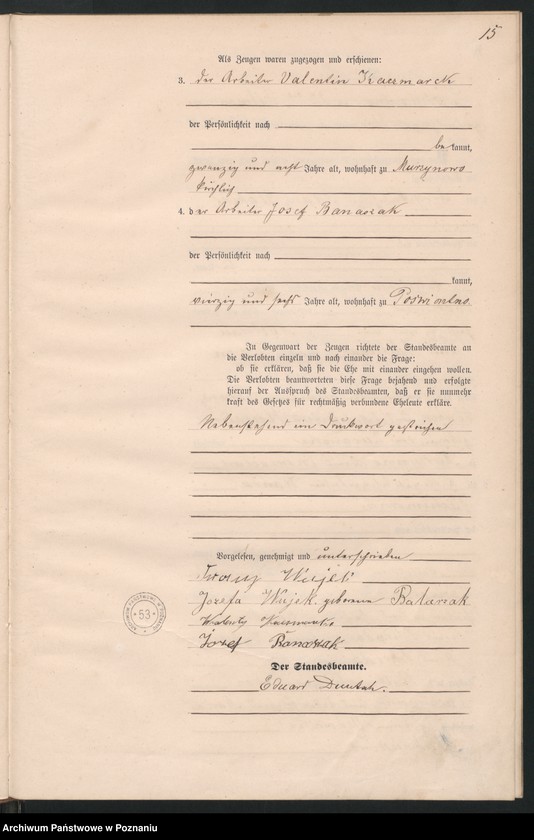 15
Als Zeugen waren zugezogen und erschienen:
3. der Arbeiter Valentin Kaczmarek
der Persönlichkeit nach
be kannt,
zwanzig und acht Jahre alt, wohnhaft zu Murzynowo
kirchlich
4. der Arbeiter Josef Banaszak
der Persönlichkeit nach
kannt,
vierzig und sechs Jahre alt, wohnhaft zu
In Gegenwart der Zeugen richtete der Standesbeamte an
die Verlobten einzeln und nach einander die Frage:
ob sie erklären, daß sie die Ehe mit einander eingehen wollen.
Die Verlobten beantworteten diese Frage bejahend und erfolgte
hierauf der Ausspruch des Standesbeamten, daß er sie nunmehr
kraft des Gesetzes für rechtmäßig verbundene Eheleute erkläre.
Nebenstehend ein Druckwort gestrichen
Vorgelesen, genehmigt und unterschrieben
Wujek
Jozefa Wujek geborene
Walenty Kaczmarek
Józef Banaszak
Der Standesbeamte.
Eduard
ARCHIWUM PAŃSTWOWE W POZNANIU
53
Archiwum Państwowe w Poznaniu